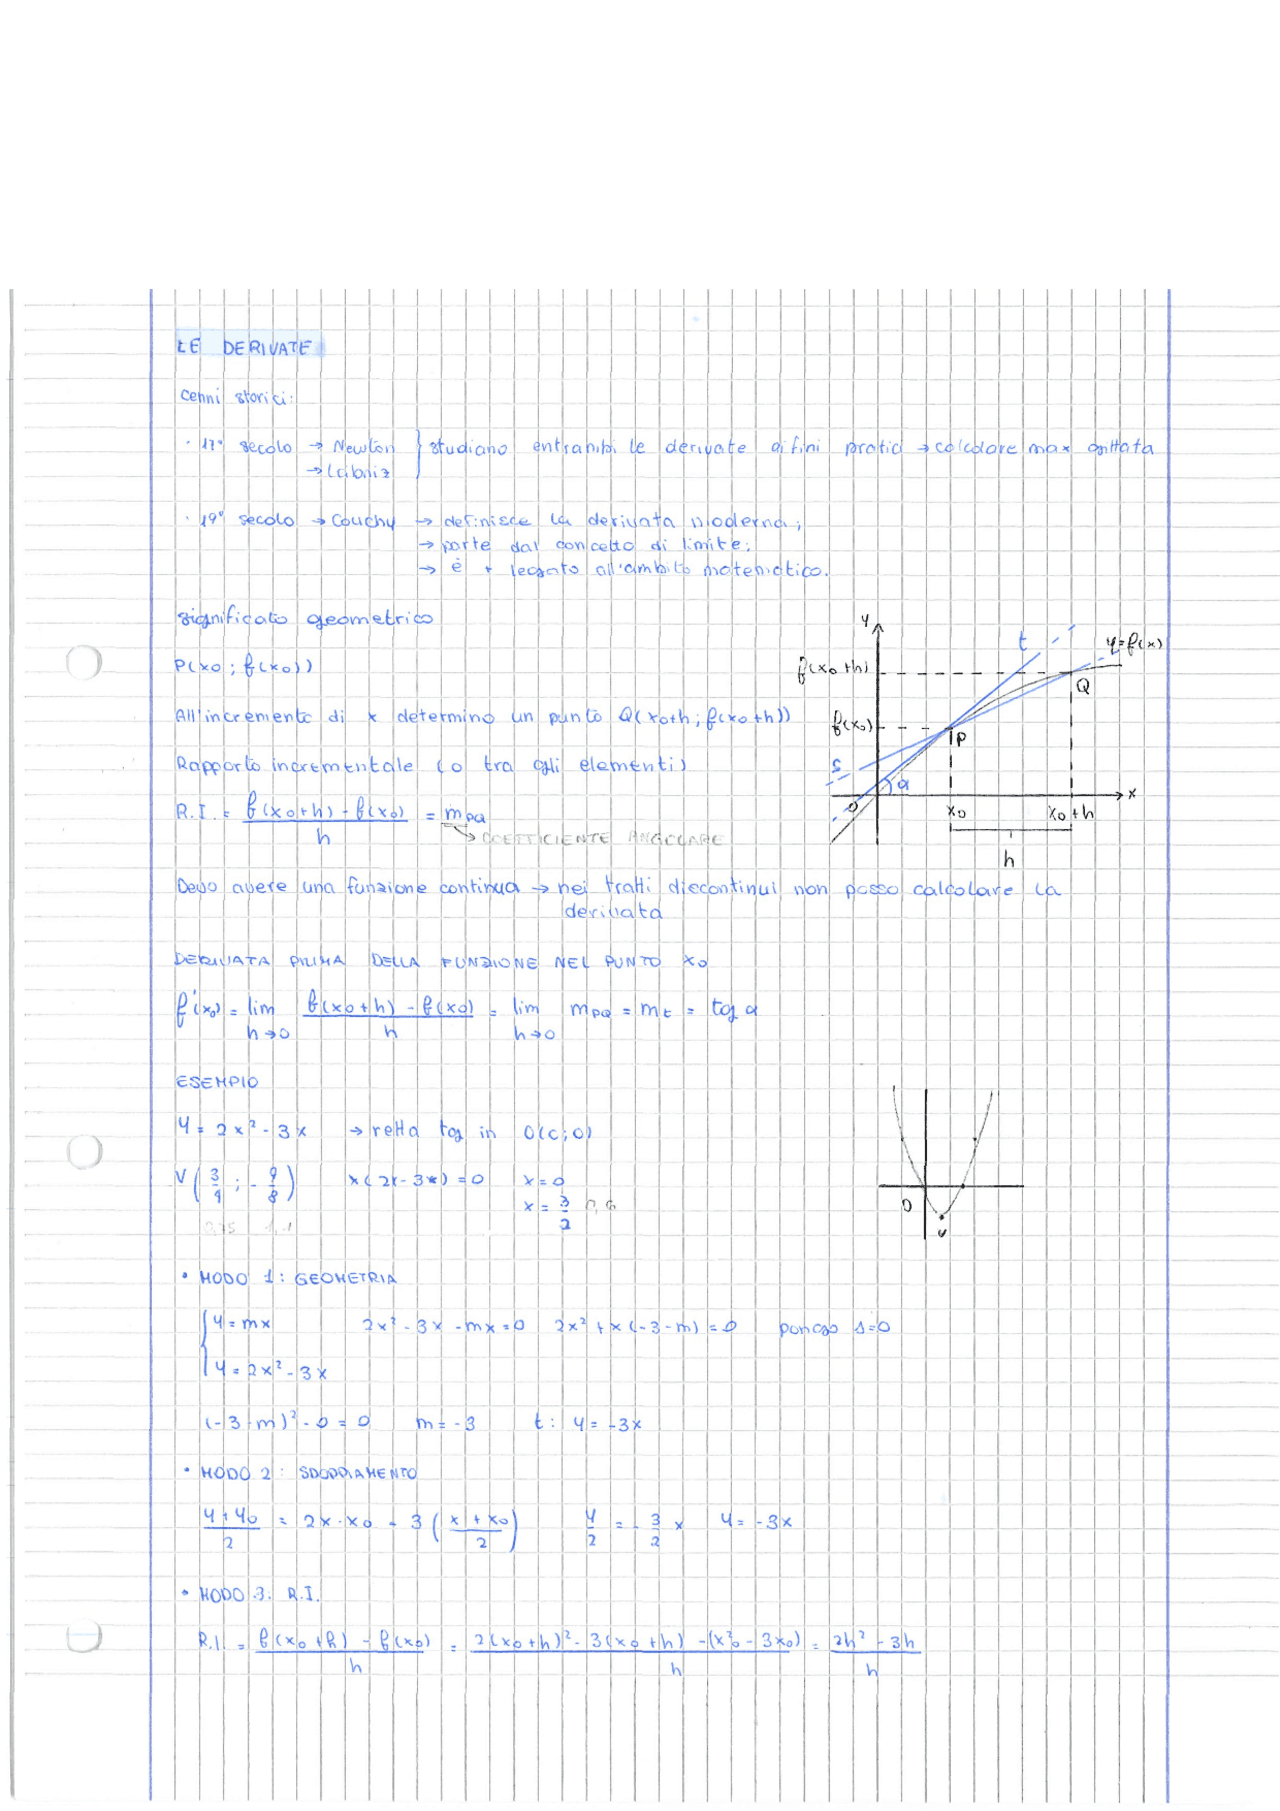 LE DERIVATE
Cenni storici:
· 17° secolo → Newton } studiano entrambi le derivate ai fini pratici → calcolare max gittata
→ Leibniz
· 19° secolo → Cauchy → definisce la derivata moderna;
→ parte dal concetto di limite;
→ è + legato all'ambito matematico.
significato geometrico
P(x0 ; f(x0))
All'incremento di x determino un punto Q(x0+h ; f(x0+h))
Rapporto incrementale (o tra gli elementi)
R.I. = f(x0+h) - f(x0) / h = mPQ
→ COEFFICIENTE ANGOLARE
y
t
y=f(x)
f(x0+h)
Q
f(x0)
P
s
α
O
x
x0
x0+h
h
Devo avere una funzione continua → nei tratti discontinui non posso calcolare la
derivata
DERIVATA PRIMA DELLA FUNZIONE NEL PUNTO x0
f'(x0) = lim h→0 f(x0+h) - f(x0) / h = lim h→0 mPQ = mt = tg α
ESEMPIO
y = 2x² - 3x → retta tg in O(0;0)
V(3/4 ; -9/8) x(2x-3x) = 0 x=0
x = 3/2
0,75 1,1
O
V
• MODO 1: GEOMETRIA
{ y = mx 2x² - 3x - mx = 0 2x² + x(-3-m) = 0 pongo Δ=0
y = 2x² - 3x
(-3-m)² - 0 = 0 m = -3 t: y = -3x
• MODO 2: SDOPPIAMENTO
y+y0 / 2 = 2x·x0 - 3(x+x0 / 2) y/2 = -3/2 x y = -3x
• MODO 3: R.I.
R.I. = f(x0+h) - f(x0) / h = 2(x0+h)² - 3(x0+h) - (x²0 - 3x0) / h = 2h² - 3h / h